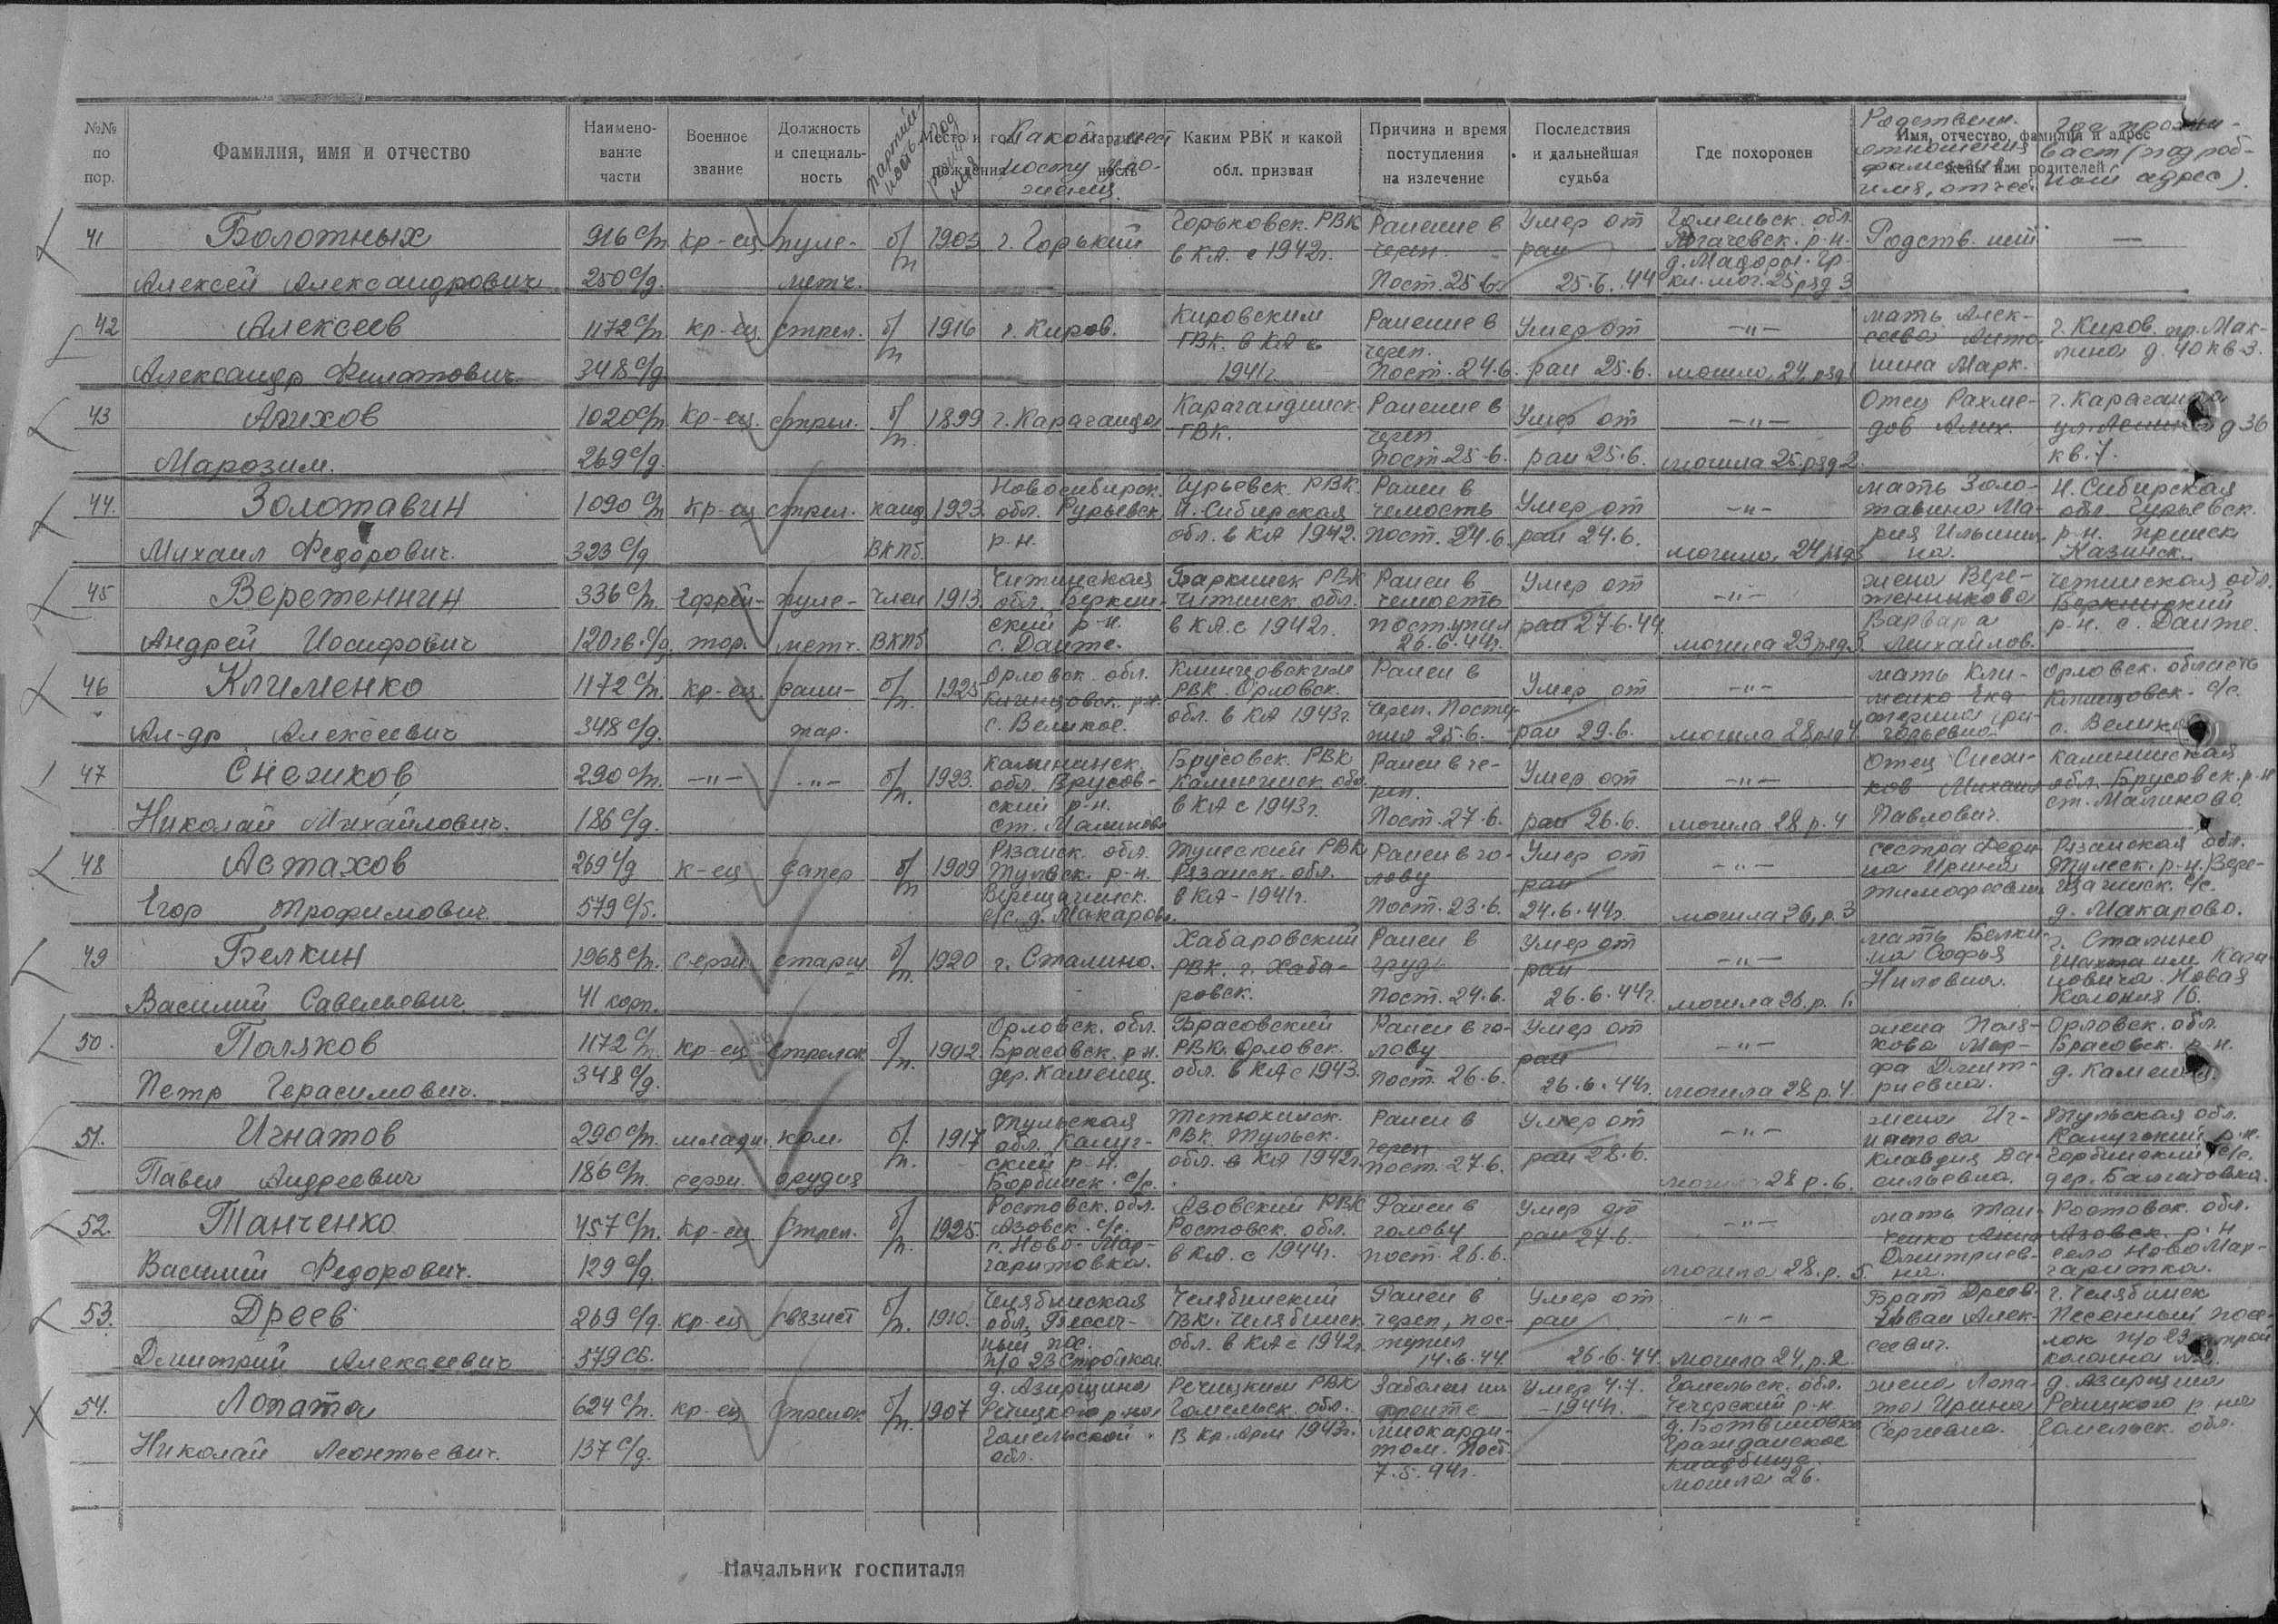 №№ по пор.
Фамилия, имя и отчество
Наимено-вание части
Военное звание
Должность и специаль-ность
Партийность
Год рожд
Место и год рождения
Какой местности уроженец
Каким РВК и какой обл. призван
Причина и время поступления на излечение
Последствия и дальнейшая судьба
Где похоронен
Имя, отчество, фамилия и адрес жены или родителей
Родствен. отношения фамилия, имя, отчес.
Где прожи-вает (подроб-ный адрес).
41 Болотных 916 с/п кр-ец пуле- б/п 1903 г. Горький Горьковск. РВК Ранение в Умер от Гомельск. обл. Родств. нит —
Алексей Александрович 250 с/д. метч. в КА с 1942г. череп. Пост. 25.6. ран 25.6.44 Рогачевск. р-н. д. Мадоры. Гр. кл. мог. 25 ряд 3
42 Алексеев 1172 с/п кр-ец. стрел. б/п 1916 г. Киров. Кировским Ранение в Умер от —"— мать Алек- г. Киров. пр. Мак-
Александр Филатович 348 с/д ГВК. в КА в 1941г. череп. Пост. 24.6. ран 25.6. могила 24, ряд 1 сеева Анто нина Марк. лина д. 40 кв 3.
43 Алихов 1020 с/п. Кр-ец. стрел. б/п. 1899 г. Караганда Карагандинск. Ранение в Умер от —"— Отец Рахме- г. Караганда
Марозим. 269 с/д. ГВК. череп Пост. 25.6. ран 25.6. могила 25, ряд 2. дов Алих. ул. Ленина д 36 кв. 7.
44. Золотавин 1090 с/п кр-ец стрел. канд. 1923 Новосибирск. Гурьевск. РВК. Ранен в Умер от —"— мать Золо- Н. Сибирская
Михаил Федорович. 323 с/д ВКПб. обл. Гурьевск р-н. Н. Сибирская обл. в КА 1942. челюсть Пост. 24.6. ран 24.6. могила, 24 ряд тавина Мария Ильинична. обл. Гурьевск. р-н. прииск Казинск.
45 Веретеннин 336 с/п. Ефрей- пуле- член 1913 Читинская Баркинск РВК Ранен в Умер от —"— жена Вере- Читинская обл.
Андрей Иосифович 120 гв. с/д. тор. метч. ВКПб обл. Беркин-ский р-н. с. Даите. Читинск обл. в КА. с 1942г. челюсть поступил 26.6.44г. ран 27.6.44. могила 23 ряд 3. тенникова Варвара Михайлов. Беркинский р-н. с. Даите.
46 Клименко 1172 с/п. кр-ец. сани- б/п. 1925 Орловск. обл. Клинцовским Ранен в Умер от —"— мать Кли- Орловск. область
Ал-др Алексеевич 348 с/д. тар. Клинцовск. р-н. с. Великое. РВК. Орловск. обл. в КА 1943г. череп. Поступил 25.6. ран 29.6. могила 28 ряд 4 менко Ека терина Гри-горьевна Клинцовск. с/с. с. Велико
47 Снегиков 290 с/п. —"— —"— б/п. 1923. Калининск. Брусовск. РВК Ранен в че- Умер от —"— Отец Снеги- Калининская
Николай Михайлович. 186 с/д. обл. Брусов-ский р-н. ст. Малиново Калининск. обл. в КА с 1943г. реп. Пост. 27.6. ран 26.6. могила 28 р. 4 ков Михаил Павлович. обл. Брусовск. р-н ст. Малиново.
48 Астахов 269 с/д к-ец сапер б/п 1909 Рязанск. обл. Тумский РВК Ранен в го- Умер от —"— сестра Феди- Рязанская обл.
Егор Трофимович. 579 с/б. Тумск. р-н. Верещагинск. с/с. д. Макарово. Рязанск. обл. в КА - 1941г. лову Пост. 23.6. ран 24.6.44г. могила 26, р. 3 на Ирина Тимофеевна Тумск. р-н. Вере-щагинск. с/с. д. Макарово.
49 Белкин 1968 с/п. сержн. старш б/п. 1920 г. Сталино. Хабаровский Ранен в Умер от —"— мать Белки- г. Сталино
Василий Савельевич 41 корп. РВК. г. Хаба-ровск. грудь Пост. 24.6. ран 26.6.44г. могила 26, р. 1. на Софья Ниловна. Шахта им Кага-новича. Новая Колония 16.
50. Поляков 1172 с/п. кр-ец стрелок б/п. 1902. Орловск. обл. Брасовский Ранен в го- Умер от —"— жена Поля- Орловск. обл.
Петр Герасимович. 348 с/д. Брасовск. р-н. дер. Каменец. РВК. Орловск. обл. в КА с 1943. лову Пост. 26.6. ран 26.6.44г. могила 28 р. 4. кова Мар-фа Дмит-риевна. Брасовск. р-н. д. Каменец.
51. Игнатов 290 с/п. младш. ком. б/п. 1917 Тульская Ранен в Умер от —"— жена Иг- Тульская обл.
Павел Андреевич 186 с/п. сержн. орудия обл. Калуг-ский р-н. Борбинск. с/с. РВК. Тульск. обл. в КА 1942г. череп Пост. 27.6. ран 28.6. могила 28 р. 6. натова Клавдия Ва-сильевна. Калугский р-н. Горбинский с/с. дер.
52. Танченко 457 с/п. кр-ец стрел. б/п. 1925. Ростовск. обл. Азовский РВК Ранен в Умер от —"— мать Тан- Ростовск. обл.
Василий Федорович. 129 с/д. Азовск. с/с. с. Ново-Мар-гаритовка. Ростовск. обл. в КА. с 1944г. голову пост. 26.6. ран 27.6. могила 28. р. 5. ченко Анна Дмитриев-на. Азовск. р-н село НовоМар-гаритка.
53. Дреев 269 с/д. кр-ец связист б/п. 1910. Челябинская Челябинский Ранен в Умер от —"— Брат Дреев г. Челябинск
Дмитрий Алексеевич 579 сб. обл. ный пос. п/о 23 Стройкол. ГВК. Челябинск. обл. в КА с 1942г. череп, пос-тупил 14.6.44. ран 26.6.44. могила 24, р. 2. Иван Алек-сеевич. Песенный посе-лок п/о 23 строй колонна
54. Лопата 624 с/п. кр-ец стрелок б/п. 1907 д. Азирщина Речицким РВК Заболел на Умер 4.7. Гомельск. обл. жена Лопа- д. Азирщина
Николай Леонтьевич. 137 с/д. Речицкого р-на Гомельской обл. Гомельск. обл. в кр. арм 1943г. фронте миокарди-том. Пост. 7.5.44г. - 1944г. Чечерский р-н. д. Ботвиновка Гражданское кладбище. могила 26. та Ирина Сергеевна. Речицкого р-на Гомельск. обл.
Начальник госпиталя